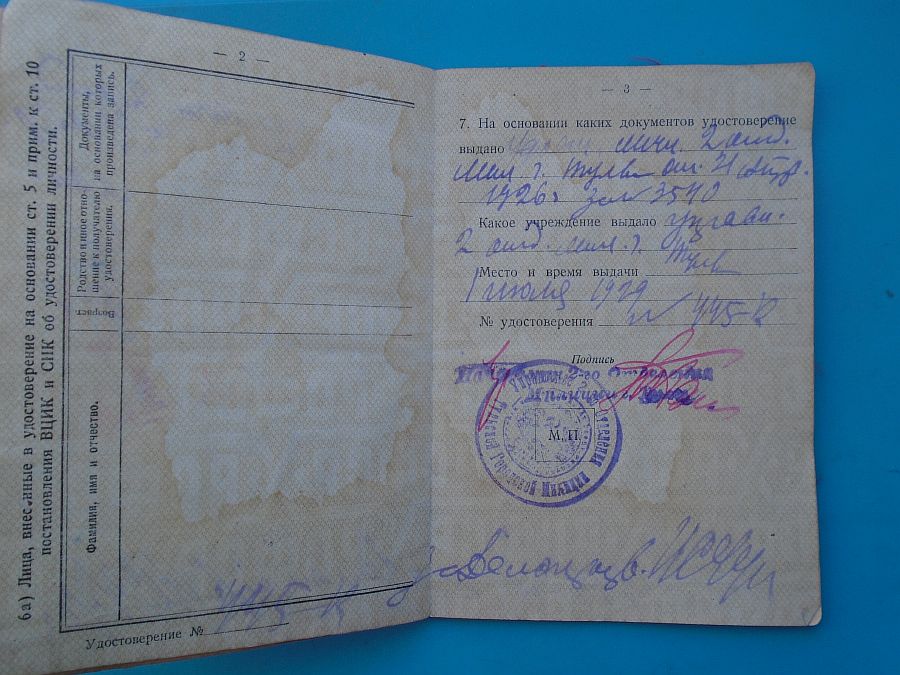 — 2 —
6а) Лица, внесенные в удостоверение на основании ст. 5 и прим. к ст. 10
постановления ВЦИК и СНК об удостоверении личности.
Фамилия, имя и отчество.
Возраст.
Родство и иное отно-
шение к получателю
удостоверения.
Документы,
на основании которых
произведена запись.
Удостоверение № 445-К
— 3 —
7. На основании каких документов удостоверение
выдано 2 отд.
Мил. г. Тулы от 21
1926 г за № 3540
Какое учреждение выдало
2 отд. мил. г.
Тулы
Место и время выдачи
1 июля 1929
№ удостоверения № 445-К
Подпись
2-го Отделения
Милиции г. Тулы
М. П.